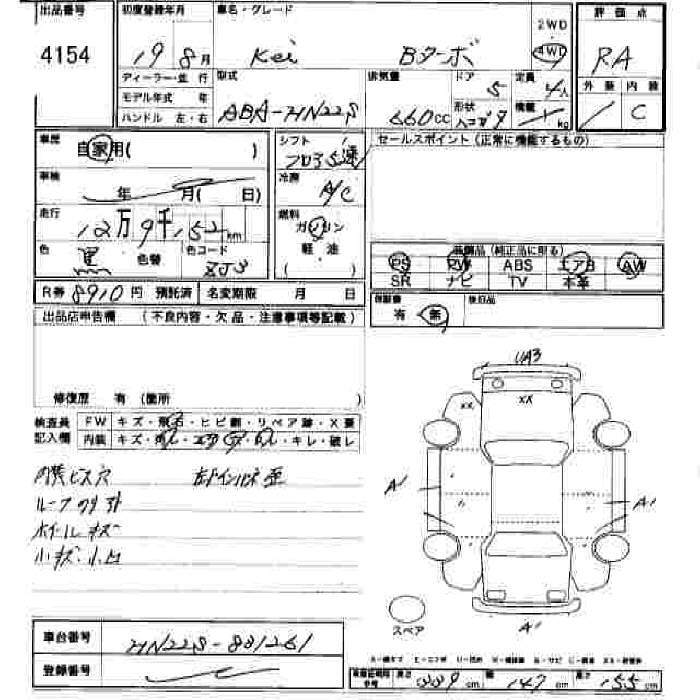 出品番号 初度登録年月 車名・グレード 2WD 評価点
4154 19 8月 Kei Bターボ 4WD RA
ディーラー・並行 型式 排気量 ドア 定員 外装 内装
モデル年式 年 ABA-HN22S 660cc 5 人 C
ハンドル 左・右 形状 積載 kg
車歴 自家用( ) シフト セールスポイント(正常に機能するもの)
フロア5速
車検 年 月( 日) 冷房 A/C
走行 12万9千152km 燃料 ガソリン
色 黒 色替 色コード ZJ3 軽・油
( )
装備品(純正品に限る)
PS PW ABS エアB AW
SR ナビ TV 本革
R券 8910円 預託済 名変期限 月 日 保証書 有・無 後日品
出品店申告欄 (不良内容・欠品・注意事項等記載)
修復歴 有(箇所 )
検査員 FW キズ・飛石・ヒビ割・リペア跡・X要
記入欄 内装 キズ・キレ・破レ
内装ビス穴 左インパネ歪
ルーフ
ホイールキズ
小キズ・小凹
UA3
XX XX
A1 A1
A1
スペア
車台番号 HN22S-831261
登録番号
339cm 147cm 155cm